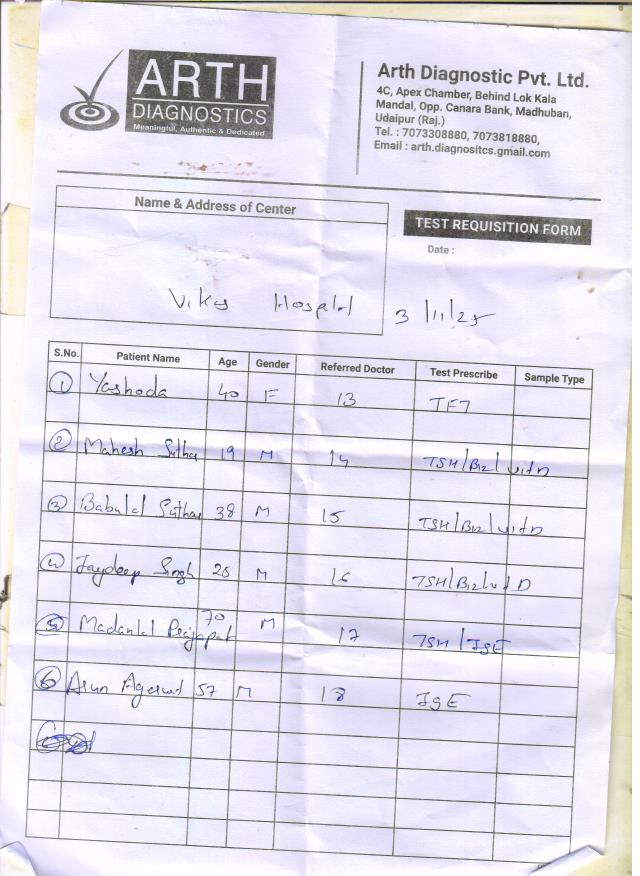 ARTH
DIAGNOSTICS
Meaningful, Authentic & Dedicated
Arth Diagnostic Pvt. Ltd.
4C, Apex Chamber, Behind Lok Kala
Mandal, Opp. Canara Bank, Madhuban,
Udaipur (Raj.)
Tel. : 7073308880, 7073818880,
Email : arth.diagnositcs.gmail.com
Name & Address of Center
TEST REQUISITION FORM
Date :
Vikas Hospital 3/11/25
S.No. Patient Name Age Gender Referred Doctor Test Prescribe Sample Type
1 Yashoda 40 F 13
2 Mahesh Suthar 19 M 14 TSH/B12/vitD
3 Babulal Suthar 38 M 15 TSH/B12/vitD
4 Jaydeep Singh 25 M 16 TSH/B12/vitD
5 Madanlal Prajapat 70 M 17 TSH/IgE
6 Arun Agarwal 57 M 18 IgE